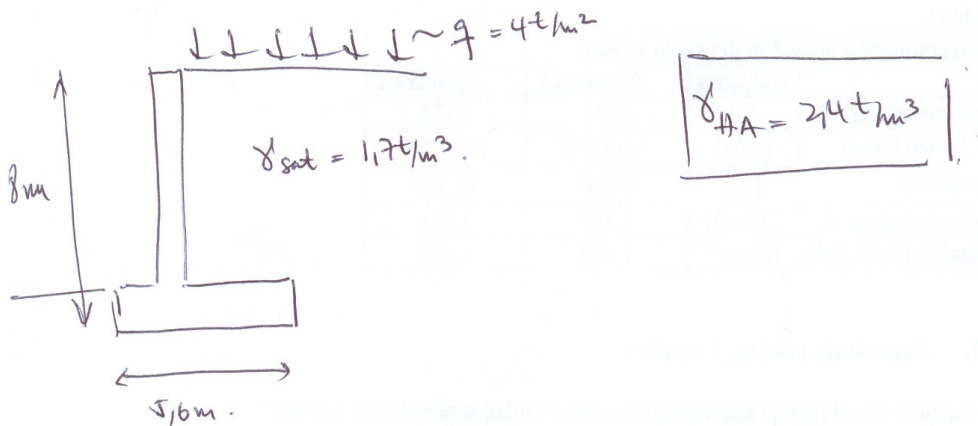 q = 4 t/m²
γsat = 1,7 t/m³.
γHA = 2,4 t/m³
8m
5,6m.